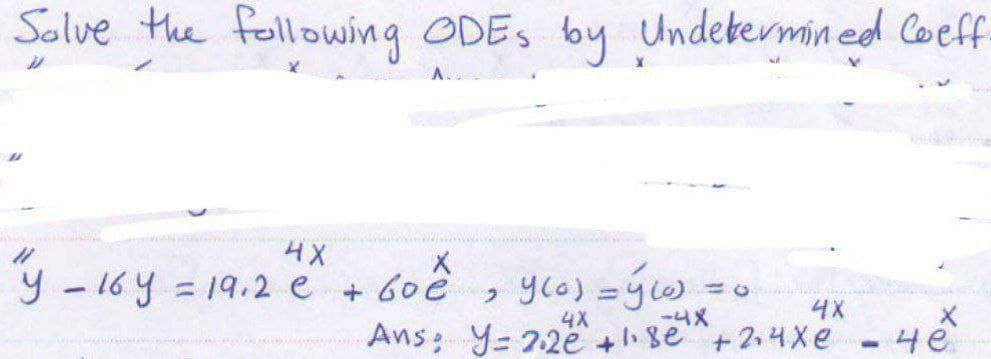 Solve the following ODEs by Undetermined Coeff.
y'' - 16y = 19.2 e^4x + 60e^x , y(0) = y'(0) = 0
Ans: y = 2.2e^4x + 1.8e^-4x + 2.4xe^4x - 4e^x